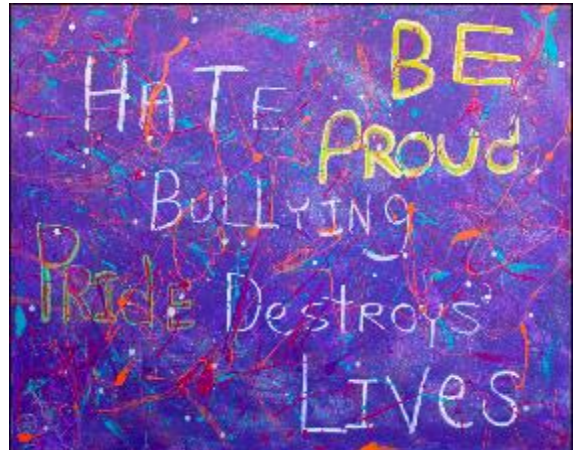 BE
HATE
PROUd
BULLYING
PRIdE DestROYS
LIVes